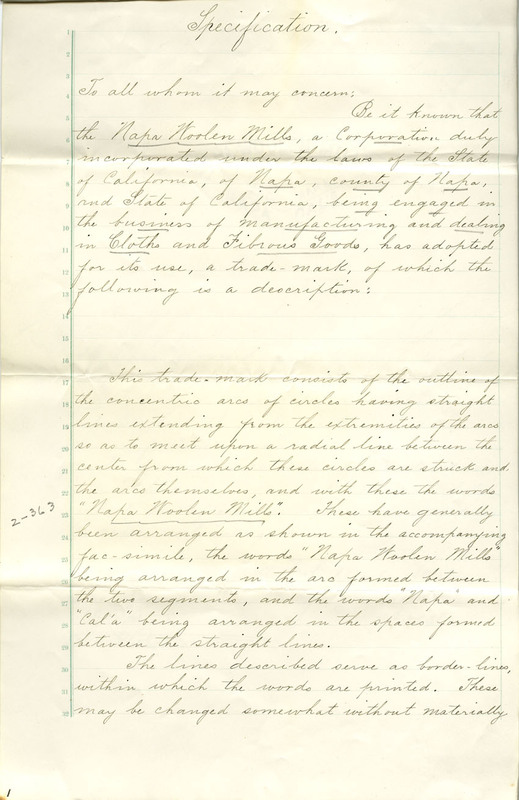 Specification.
To all whom it may concern:
Be it known that
the Napa Woolen Mills, a Corporation duly
incorporated under the laws of the State
of California, of Napa, county of Napa,
and State of California, being engaged in
the business of manufacturing and dealing
in Cloths and Fibrous Goods, has adopted
for its use, a trade-mark, of which the
following is a description:
This trade-mark consists of the outline of
the concentric arcs of circles having straight
lines extending from the extremities of the arcs
so as to meet upon a radial line between the
center from which these circles are struck and
the arcs themselves, and with these the words
"Napa Woolen Mills". These have generally
been arranged as shown in the accompanying
fac-simile, the words "Napa Woolen Mills"
being arranged in the arc formed between
the two segments, and the words "Napa" and
"Cal'a" being arranged in the spaces formed
between the straight lines.
The lines described serve as border-lines,
within which the words are printed. These
may be changed somewhat without materially
2-363
1
1
2
3
4
5
6
7
8
9
10
11
12
13
14
15
16
17
18
19
20
21
22
23
24
25
26
27
28
29
30
31
32